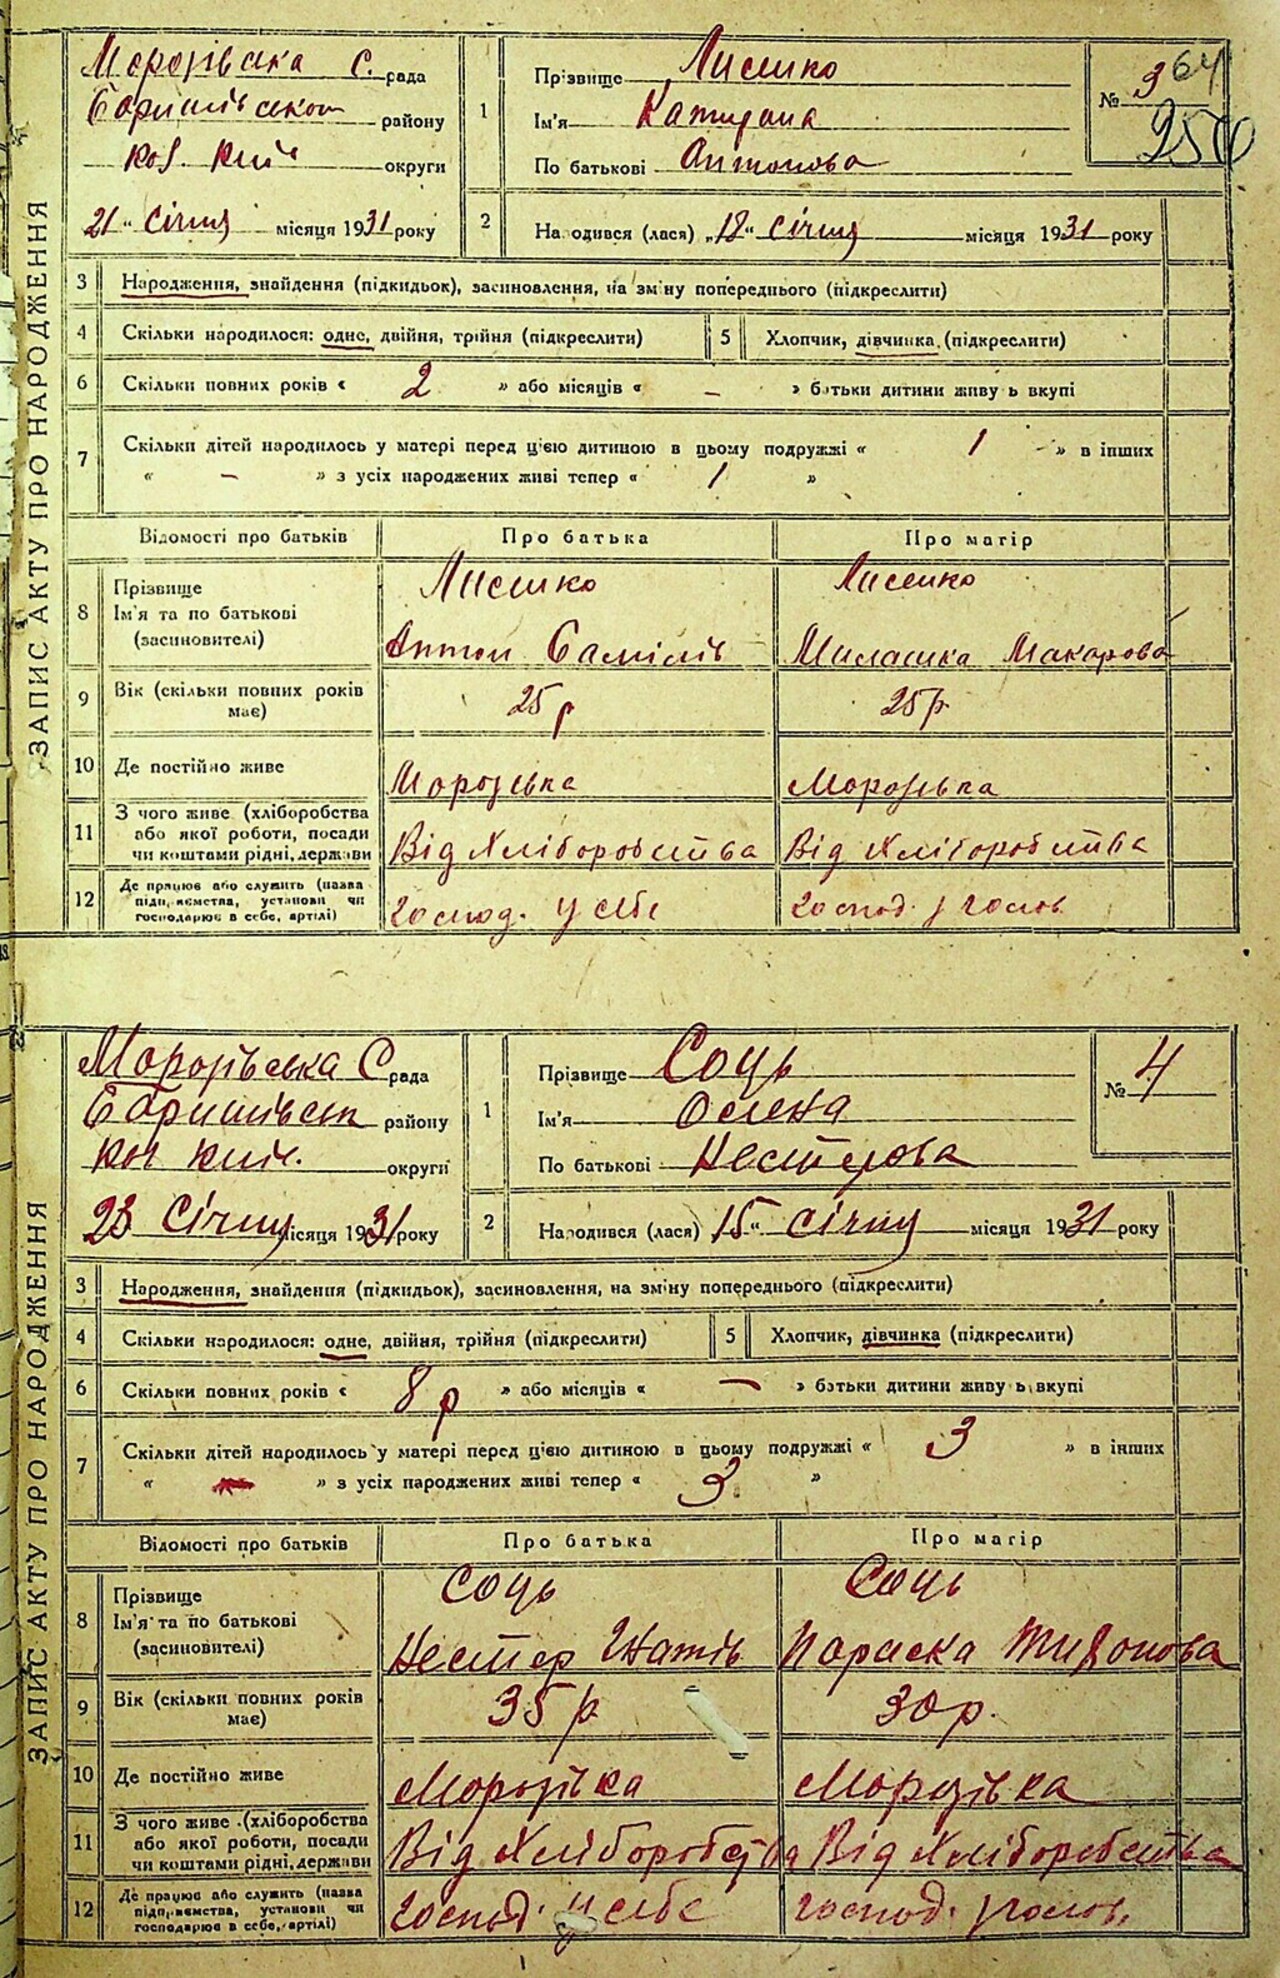 ЗАПИС АКТУ ПРО НАРОДЖЕННЯ
Морозівська С. рада
Баришівськог району
кол. Київ округи
21 " Січня місяця 1931 року
1 Прізвище Лисенко
Ім'я Катерина
По батькові Антонова
№ 3
64
250
2 Народився (лася) „18" січня місяця 1931 року
3 Народження, знайдення (підкидьок), засиновлення, на зміну попереднього (підкреслити)
4 Скільки народилося: одне, двійня, трійня (підкреслити) 5 Хлопчик, дівчинка (підкреслити)
6 Скільки повних років « 2 » або місяців « – » батьки дитини живуть вкупі
7 Скільки дітей народилось у матері перед цією дитиною в цьому подружжі « 1 » в інших
« – » з усіх народжених живі тепер « 1 »
Відомості про батьків Про батька Про матір
8 Прізвище Лисенко Лисенко
Ім'я та по батькові
(засиновителі) Антон Самілів Миласика Макарова
9 Вік (скільки повних років має) 25 р 25 р.
10 Де постійно живе Морозівка Морозівка
11 З чого живе (хліборобства
або якої роботи, посади
чи коштами рідні, держави Від Хліборобства Від Хліборобства
12 Де працює або служить (назва
підприємства, установи чи
господарює в себе, артілі) господ. у себе господ. у голов.
ЗАПИС АКТУ ПРО НАРОДЖЕННЯ
Морозівська С рада
Баришівськ району
кол Київ. округи
23 Січня місяця 1931 року
1 Прізвище Соць
Ім'я Олена
По батькові Нестерова
№ 4
2 Народився (лася) „15" січня місяця 1931 року
3 Народження, знайдення (підкидьок), засиновлення, на зміну попереднього (підкреслити)
4 Скільки народилося: одне, двійня, трійня (підкреслити) 5 Хлопчик, дівчинка (підкреслити)
6 Скільки повних років « 8 р » або місяців « – » батьки дитини живуть вкупі
7 Скільки дітей народилось у матері перед цією дитиною в цьому подружжі « 3 » в інших
« – » з усіх народжених живі тепер « 3 »
Відомості про батьків Про батька Про матір
8 Прізвище Соць Соць
Ім'я та по батькові
(засиновителі) Нестер Гнатів Параска Тихонова
9 Вік (скільки повних років має) 35 р 30 р.
10 Де постійно живе Морозівка Морозівка
11 З чого живе (хліборобства
або якої роботи, посади
чи коштами рідні, держави Від Хліборобства Від Хліборобства
12 Де працює або служить (назва
підприємства, установи чи
господарює в себе, артілі) господ. у себе господ. у голов.